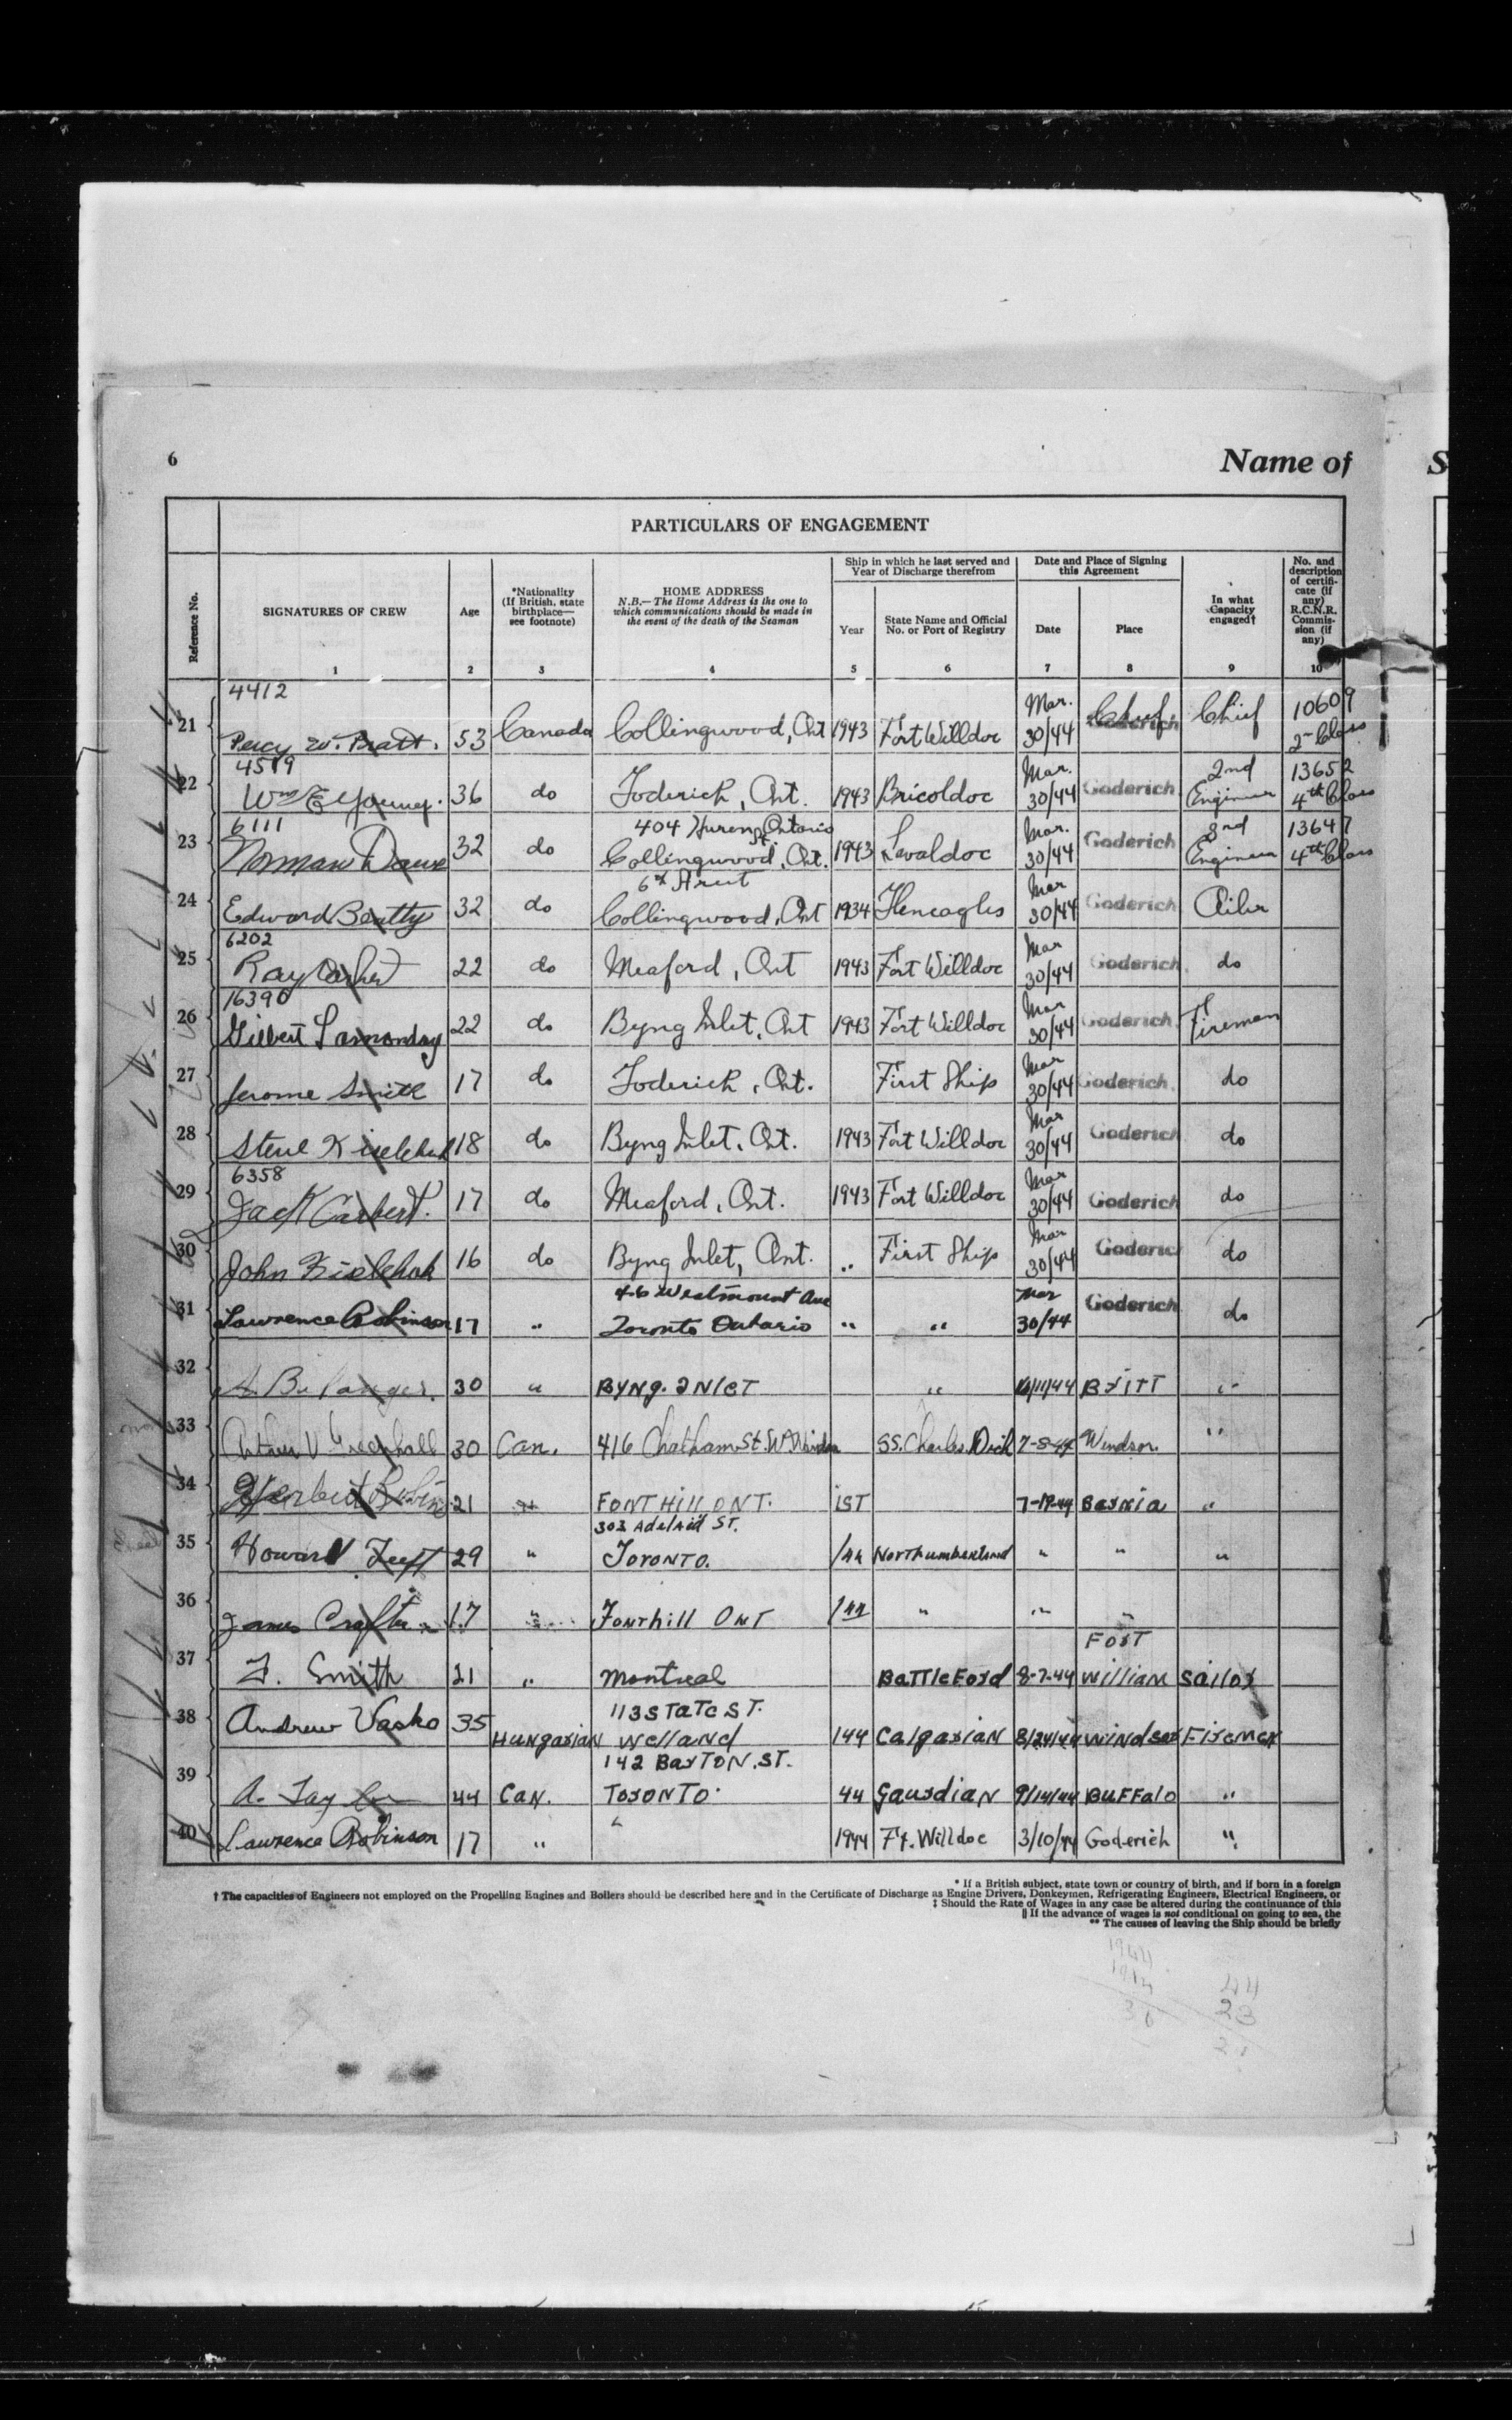 6
Name of
S
PARTICULARS OF ENGAGEMENT
Reference No.
SIGNATURES OF CREW
Age
*Nationality
(If British, state
birthplace—
see footnote)
HOME ADDRESS
N.B.—The Home Address is the one to
which communications should be made in
the event of the death of the Seaman
Ship in which he last served and
Year of Discharge therefrom
Year
State Name and Official
No. or Port of Registry
Date and Place of Signing
this Agreement
Date
Place
In what
Capacity
engaged†
No. and
description
of certifi-
cate (if
any)
R.C.N.R.
Commis-
sion (if
any)
1 2 3 4 5 6 7 8 9 10
4412
21 Percy W. Pratt. 53 Canada Collingwood, Ont 1943 Fort Willdoc Mar. 30/44 Goderich Chief 10609 2nd Class
4519
22 Wm E Young. 36 do Goderich, Ont. 1943 Bricoldoc Mar. 30/44 Goderich 2nd Engineer 13652 4th Class
6111
404 Huron St. Ontario
23 Norman 32 do Collingwood, Ont. 1943 Lavaldoc Mar. 30/44 Goderich 3rd Engineer 13647 4th Class
6th Street
24 Edward Beatty 32 do Collingwood, Ont 1934 Gleneagles Mar 30/44 Goderich Oiler
6202
25 Ray Carbert 22 do Meaford, Ont 1943 Fort Willdoc Mar 30/44 Goderich do
16390
26 Gilbert Lamonday 22 do Byng Inlet, Ont 1943 Fort Willdoc Mar 30/44 Goderich Fireman
27 Jerome Smith 17 do Goderich, Ont. First Ship Mar 30/44 Goderich do
28 Steve 18 do Byng Inlet, Ont. 1943 Fort Willdoc Mar 30/44 Goderich do
6358
29 Jack Carbert. 17 do Meaford, Ont. 1943 Fort Willdoc Mar 30/44 Goderich do
30 John Kielchak 16 do Byng Inlet, Ont. " First Ship Mar 30/44 Goderich do
46 Westmount Ave
31 Lawrence Robinson 17 " Toronto Ontario " " Mar 30/44 Goderich do
32 A. Belanger. 30 " Byng. Inlet " /11/44 Britt "
33 Arthur V Greenhall 30 Can. 416 Chatham St. W. Windsor SS. Charles Dick 7-8-44 Windsor. "
34 Herbert 21 " Fonthill Ont. 1st 7-19-44 Sarnia "
303 Adelaid St.
35 Howard 29 " Toronto. /44 Northumberland " " "
36 James 17 " Fonthill Ont /44 " " "
37 F. Smith 21 " Montreal Battleford 8-7-44 Fort William Sailor
113 State St.
38 Andrew Vasko 35 Hungarian Welland 144 Calgarian 8/24/44 Windsor Firemen
142 Barton. St.
39 A. Taylor 44 Can. Toronto. 44 Gaurdian 9/14/44 Buffalo "
40 Lawrence Robinson 17 " 1944 Ft. Willdoc 3/10/44 Goderich "
* If a British subject, state town or country of birth, and if born in a foreign
† The capacities of Engineers not employed on the Propelling Engines and Boilers should be described here and in the Certificate of Discharge as Engine Drivers, Donkeymen, Refrigerating Engineers, Electrical Engineers, or
‡ Should the Rate of Wages in any case be altered during the continuance of this
|| If the advance of wages is not conditional on going to sea, the
** The causes of leaving the Ship should be briefly
1944
1914
30
44
23
21